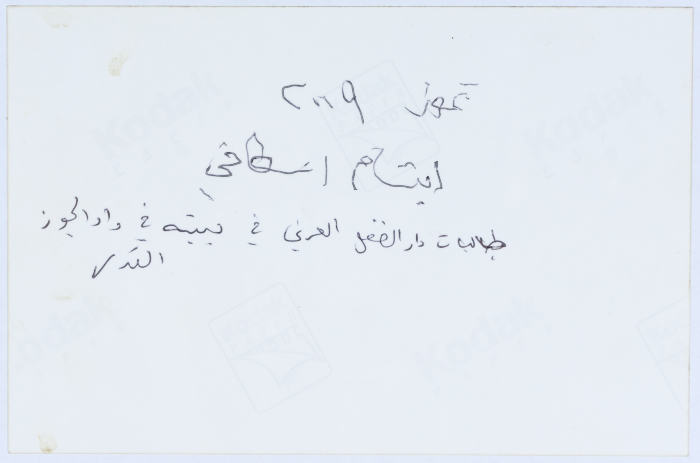 تموز ٢٠٠٩
ابتسام اسطافي
طالبات دار الطفل العربي في بيته في واد الجوز
القدس
Kodak
Kodak
Kodak
Kodak
Kodak